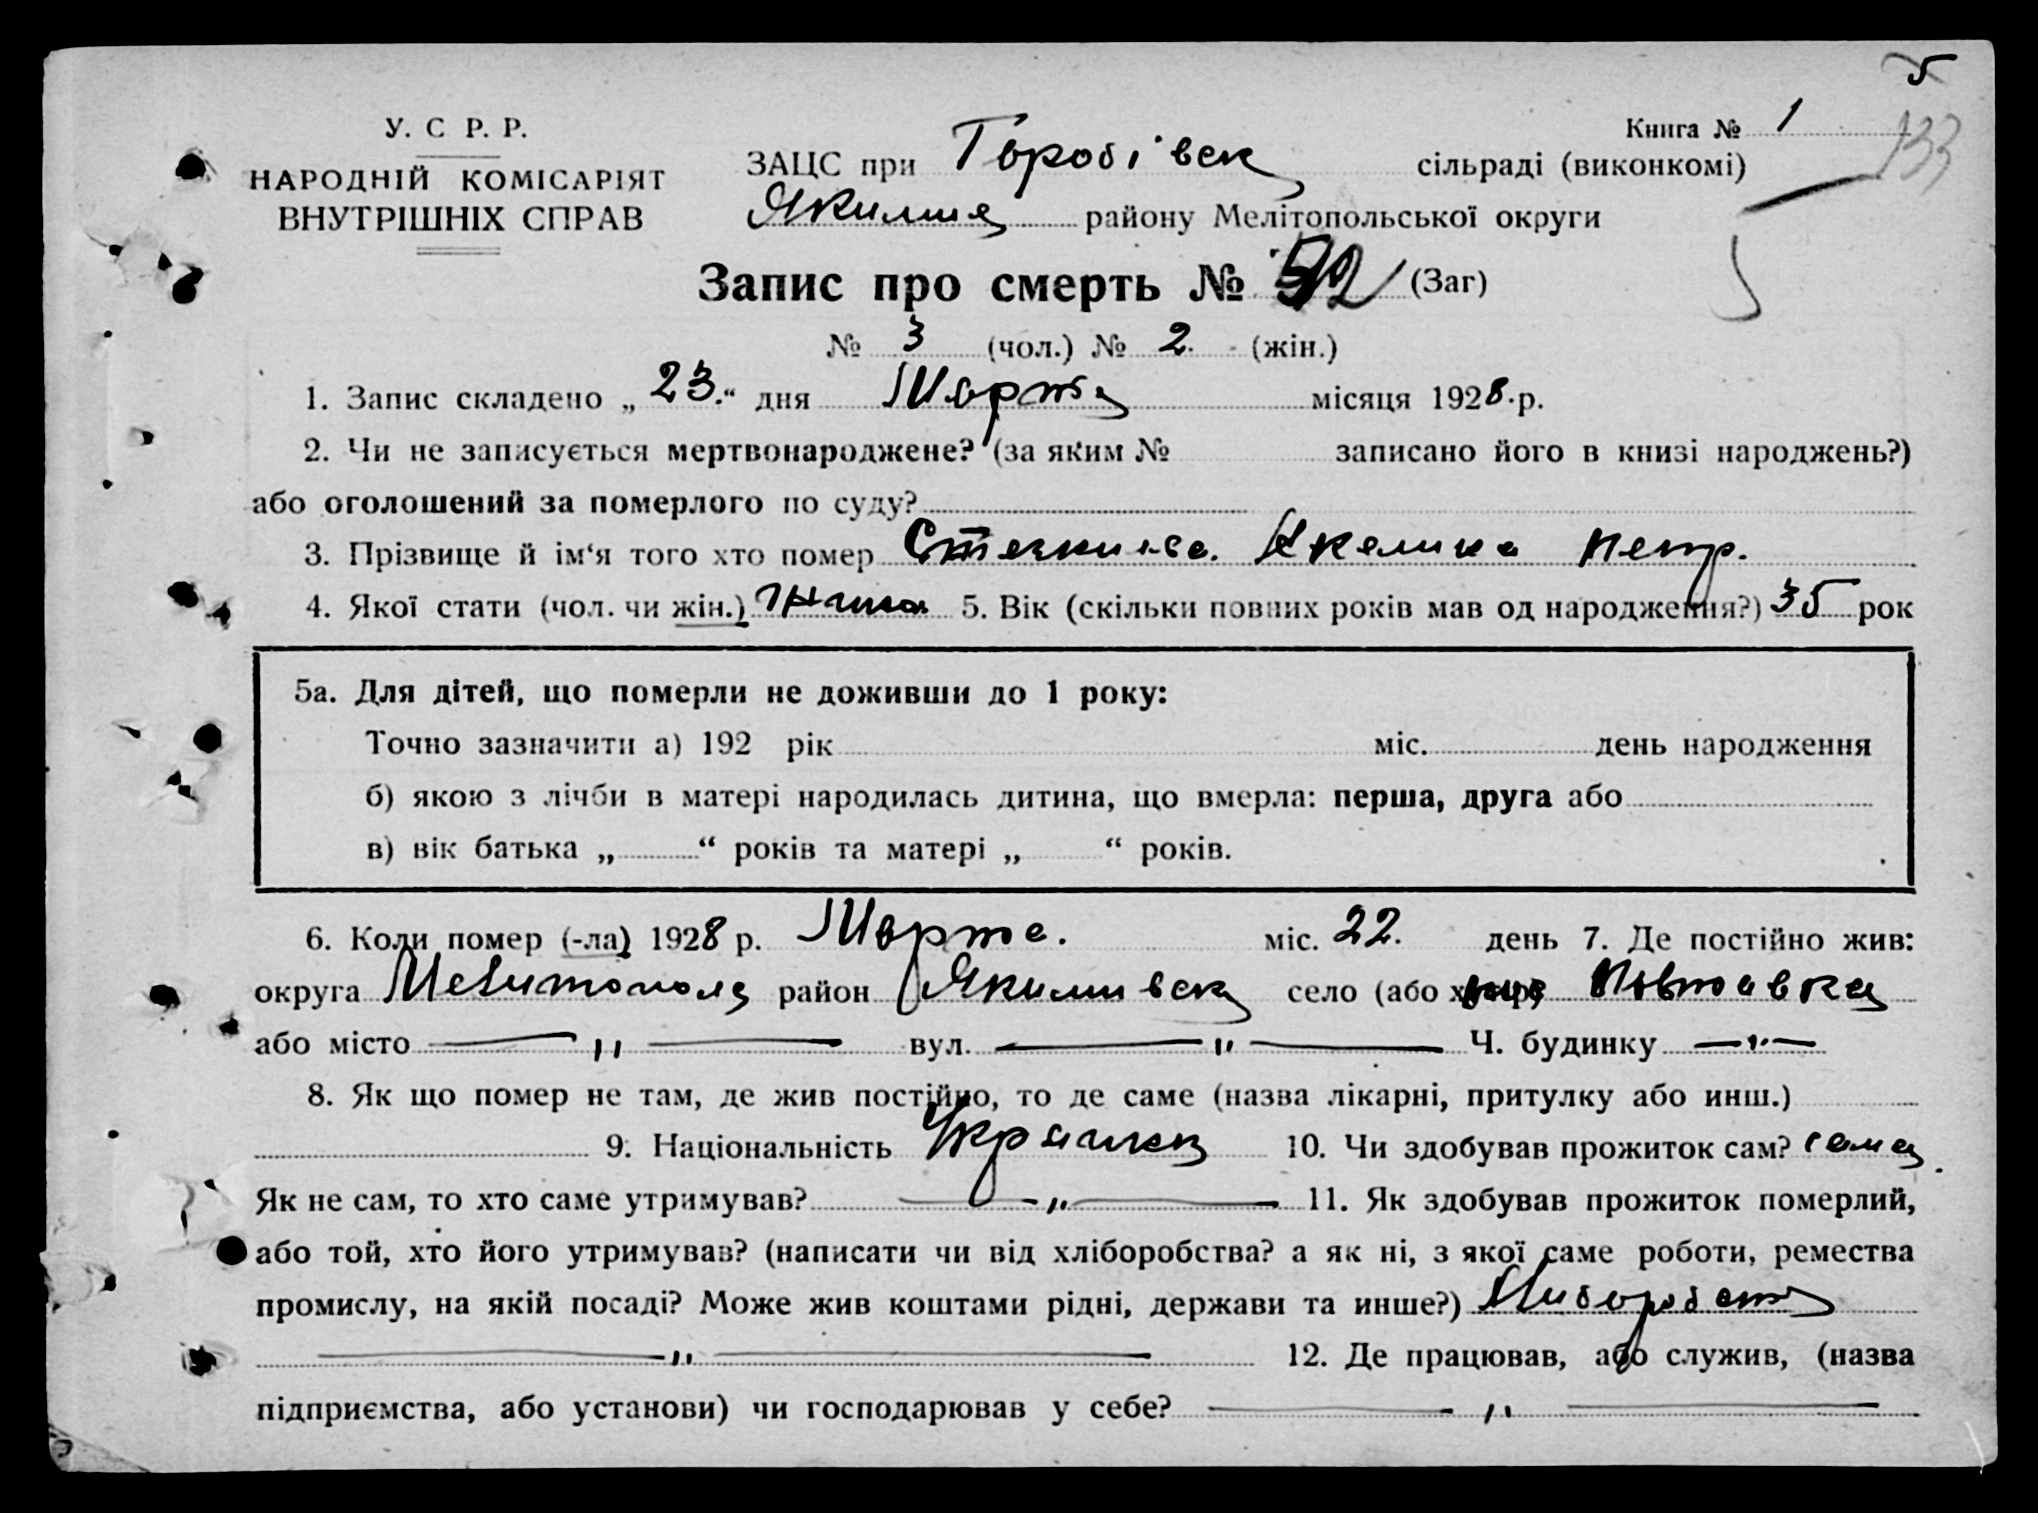 5
У. С Р. Р.
Книга № 1
133
НАРОДНІЙ КОМІСАРІЯТ
ВНУТРІШНІХ СПРАВ
ЗАЦС при Горобівск сільраді (виконкомі)
Якимів району Мелітопольської округи
Запис про смерть № (Заг)
№ 3 (чол.) № 2. (жін.)
1. Запис складено „23.“ дня Марта місяця 1928.р.
2. Чи не записується мертвонароджене? (за яким № записано його в книзі народжень?)
або оголошений за померлого по суду?
3. Прізвище й ім‘я того хто помер Акелина Петр.
4. Якої стати (чол. чи жін.) 5. Вік (скільки повних років мав од народження?) 35 рок
5а. Для дітей, що померли не доживши до 1 року:
Точно зазначити а) 192 рік міс. день народження
б) якою з лічби в матері народилась дитина, що вмерла: перша, друга або
в) вік батька „ “ років та матері „ “ років.
6. Коли помер (-ла) 1928 р. Марта. міс. 22. день 7. Де постійно жив:
округа Мелитополя район Якимивск село (або хутір) Полтавка
або місто — „ — вул. — „ — Ч. будинку — „ —
8. Як що помер не там, де жив постійно, то де саме (назва лікарні, притулку або инш.)
9. Національність 10. Чи здобував прожиток сам? сама
Як не сам, то хто саме утримував? — „ — 11. Як здобував прожиток померлий,
або той, хто його утримував? (написати чи від хліборобства? а як ні, з якої саме роботи, ремества
промислу, на якій посаді? Може жив коштами рідні, держави та инше?)
— „ — 12. Де працював, або служив, (назва
підприємства, або установи) чи господарював у себе? — „ —